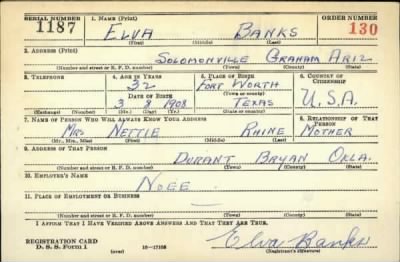 SERIAL NUMBER 1. NAME (Print) ORDER NUMBER
1187 ELVA BANKS 130
(First) (Middle) (Last)
2. ADDRESS (Print)
SOLOMONVILLE GRAHAM ARIZ
(Number and street or R. F. D. number) (Town) (County) (State)
3. TELEPHONE 4. AGE IN YEARS 5. PLACE OF BIRTH 6. COUNTRY OF CITIZENSHIP
32 FORT WORTH
DATE OF BIRTH (Town or county)
3 8 1908 TEXAS U.S.A.
(Exchange) (Number) (Mo.) (Day) (Yr.) (State or country)
7. NAME OF PERSON WHO WILL ALWAYS KNOW YOUR ADDRESS 8. RELATIONSHIP OF THAT PERSON
MRS NETTIE RHINE MOTHER
(Mr., Mrs., Miss) (First) (Middle) (Last)
9. ADDRESS OF THAT PERSON
DURANT BRYAN OKLA.
(Number and street or R. F. D. number) (Town) (County) (State)
10. EMPLOYER'S NAME
11. PLACE OF EMPLOYMENT OR BUSINESS
(Number and street or R. F. D. number) (Town) (County) (State)
I AFFIRM THAT I HAVE VERIFIED ABOVE ANSWERS AND THAT THEY ARE TRUE.
REGISTRATION CARD
D. S. S. Form 1 (over) Elva Banks
(Registrant's signature)